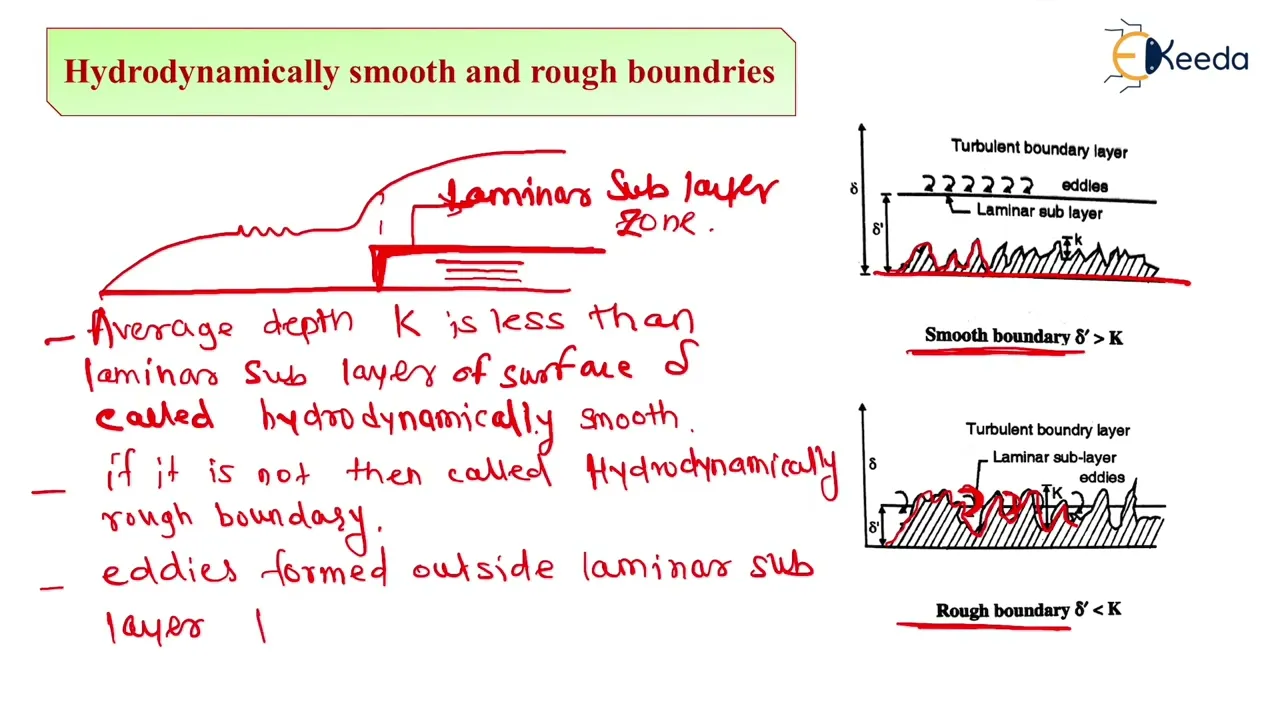 Hydrodynamically smooth and rough boundries
EKeeda
Laminar Sub layer
zone.
- Average depth K is less than
laminar sub layer of surface δ
called hydrodynamically smooth.
- if it is not then called Hydrodynamically
rough boundary.
- eddies formed outside laminar sub
layer |
Turbulent boundary layer
δ
eddies
Laminar sub layer
δ'
k
Smooth boundary δ′ > K
Turbulent boundry layer
Laminar sub-layer
δ
eddies
K
δ'
Rough boundary δ′ < K